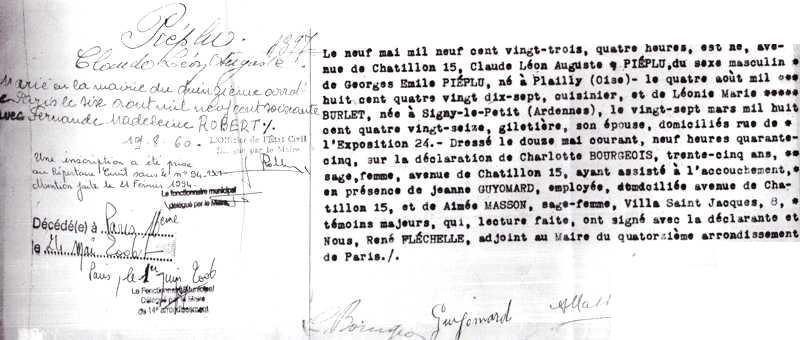 Piéplu.
1397
Claude Léon Auguste
Marié en la mairie du quinzième arrodt
Paris le six août mil neuf cent soixante
avec Fernande Madeleine ROBERT./.
19.8.60. L'Officier de l'État Civil
Une inscription a été prise
au Répertoire Civil sous le n° 94.
Mention faite le 21 Février 1994.
Le fonctionnaire municipal
délégué par le Maire
Décédé(e) à Paris
le 24 Mai 2006
Paris, le 1er Juin 2006
Le Fonctionnaire Municipal
Délégué par le Maire
du 14e arrondissement
Le neuf mai mil neuf cent vingt-trois, quatre heures, est ne, ave-
nue de Chatillon 15, Claude Léon Auguste * PIÉPLU, du sexe masculin *
de Georges Emile PIÉPLU, né à Plailly (Oise)- le quatre août mil **
huit cent quatre vingt dix-sept, cuisinier, et de Léonie Marie *****
BURLET, née à Signy-le-Petit (Ardennes), le vingt-sept mars mil huit
cent quatre vingt-seize, giletière, son épouse, domiciliés rue de *
l'Exposition 24.- Dressé le douze mai courant, neuf heures quarante-
cinq, sur la déclaration de Charlotte BOURGEOIS, trente-cinq ans, **
sage,femme, avenue de Chatillon 15, ayant assisté à l'accouchement, *
en présence de jeanne GUYOMARD, employée, domiciliée avenue de Cha-
tillon 15, et de Aimée MASSON, sage-femme, Villa Saint Jacques, 8, *
témoins majeurs, qui, lecture faite, ont signé avec la déclarante et
Nous, René FLÉCHELLE, adjoint au Maire du quatorzième arrondissement
de Paris./.
Guyomard